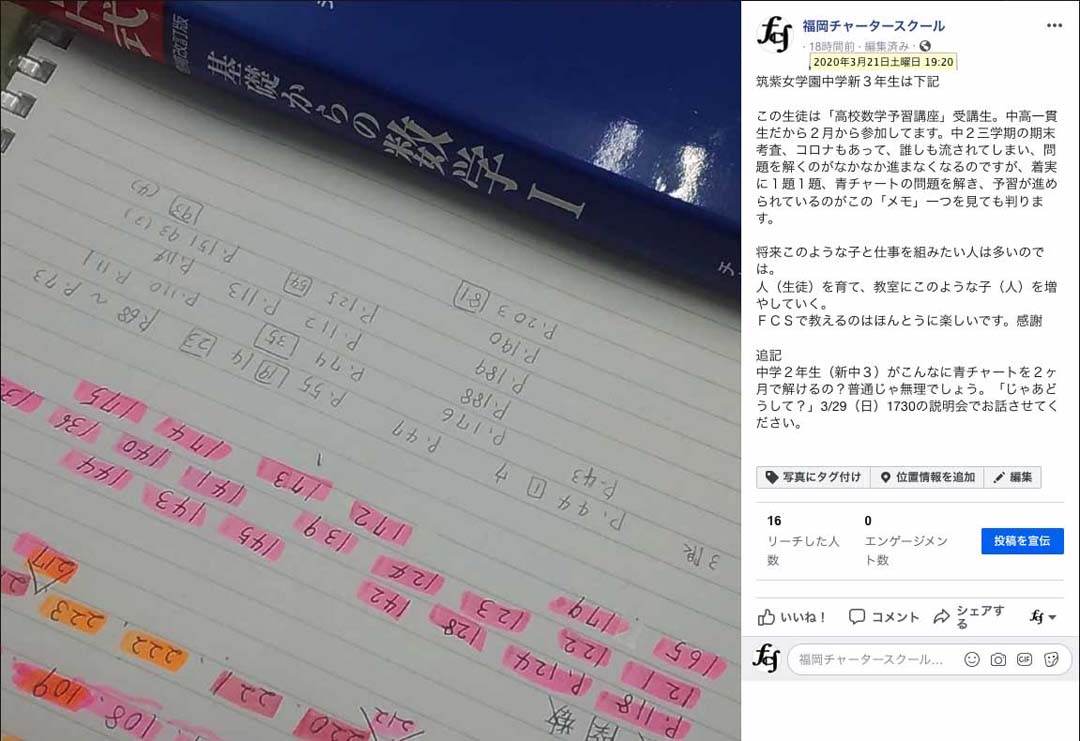 式
改訂版
基礎からの数学Ⅰ
チ
関数
P.118
121
165
P.124
122
179
128
123
142
124
172
145
139
173
143
141
174
144
140
175
136
212
220
221
222
223
217
108
109
3限
P.44 1 ウ
P.43
P.47
P.176
P.188
P.189
P.190
P.203 81
P.55 19 14 23
P.74 35
P.68 ~ P.73
P.110 P.111
P.112
P.113
P.114
P.125 59
P.151 93 (2)
93 (4)
福岡チャータースクール
· 18時間前 · 編集済み ·
2020年3月21日土曜日 19:20
筑紫女学園中学新３年生は下記
この生徒は「高校数学予習講座」受講生。中高一貫
生だから２月から参加してます。中２三学期の期末
考査、コロナもあって、誰しも流されてしまい、問
題を解くのがなかなか進まなくなるのですが、着実
に１題１題、青チャートの問題を解き、予習が進め
られているのがこの「メモ」一つを見ても判りま
す。
将来このような子と仕事を組みたい人は多いので
は。
人（生徒）を育て、教室にこのような子（人）を増
やしていく。
ＦＣＳで教えるのはほんとうに楽しいです。感謝
追記
中学２年生（新中３）がこんなに青チャートを２ヶ
月で解けるの？普通じゃ無理でしょう。「じゃあど
うして？」3/29（日）1730の説明会でお話させてく
ださい。
写真にタグ付け 位置情報を追加 編集
16 0
リーチした人数 エンゲージメント数 投稿を宣伝
いいね！ コメント シェアする
福岡チャータースクール... GIF